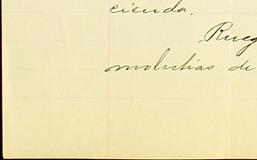 cienda.
Rueg
molestias de